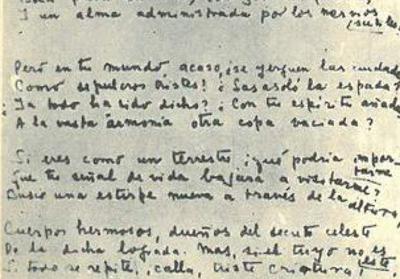 Y un alma administrada por los nervios
sutiles.
Pero en tu mundo, acaso, ¿se yerguen las ciudades
Como sepulcros tristes? ¿Las asoló la espada?
¿Ya todo ha sido dicho? ¿Con tu espíritu añades
A la vasta armonía otra copa vaciada?
Si eres como un terrestre, ¿qué podría impor-
tarme
Que tu señal de vida bajara a visitarme?
Busco una estirpe nueva a través de la altura,
Cuerpos hermosos, dueños del secreto celeste
De la dicha lograda. Mas, si el tuyo no es
este
Si todo se repite, ¡calla, triste criatura!